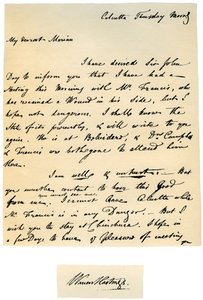 Calcutta Thursday Morng
My dearest Marian
I have desired Sir John
Day to inform you that I have had a
Meeting this Morning with Mr. Francis, who
has received a Wound in his Side, but I
hope not dangerous. I shall know the
State of it presently, & will write to you
again. He is at Belvidere, & Dr. Campbell
& Francis are both gone to attend him
there.
I am well & unhurt. But
you must be content to hear this Good
from me. I cannot leave Calcutta while
Mr. Francis is in any Danger. But I
wish you to stay at Chinsura. I hope in
a few Days to have ye Pleasure of meeting
Warren Hastings